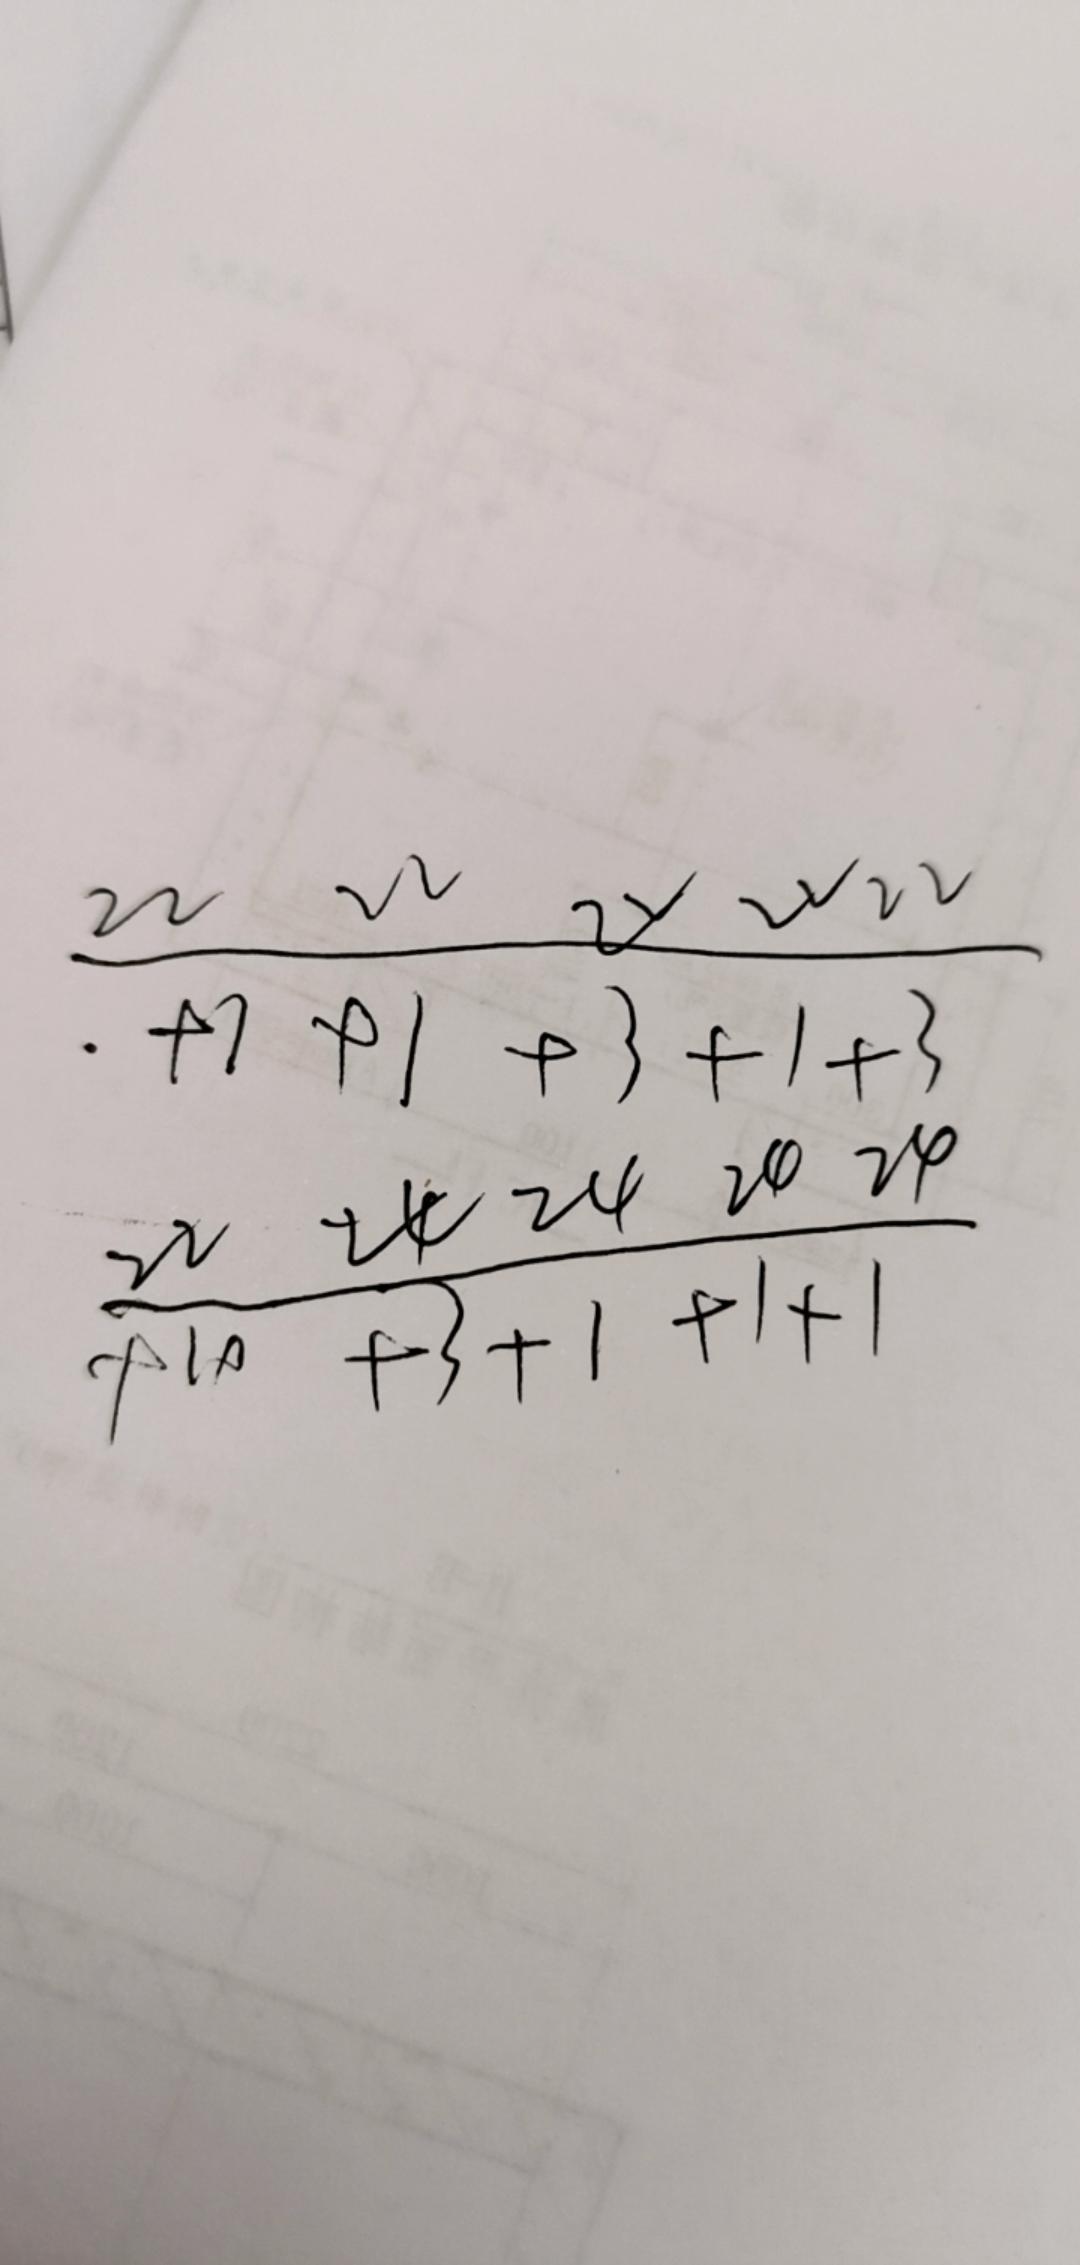 22 22 22 22 22
. +1 +1 +3 +1 +3
22 24 24 20 24
+10 +3 +1 +1 +1